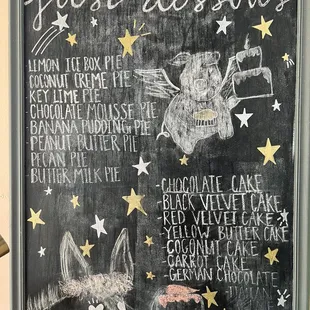 just desserts
LEMON ICE BOX PIE
COCONUT CREME PIE
KEY LIME PIE
CHOCOLATE MOUSSE PIE
BANANA PUDDING PIE
PEANUT BUTTER PIE
PECAN PIE
BUTTER MILK PIE
-CHOCOLATE CAKE
-BLACK VELVET CAKE
-RED VELVET CAKE
-YELLOW BUTTER CAKE
-COCONUT CAKE
-CARROT CAKE
-GERMAN CHOCOLATE